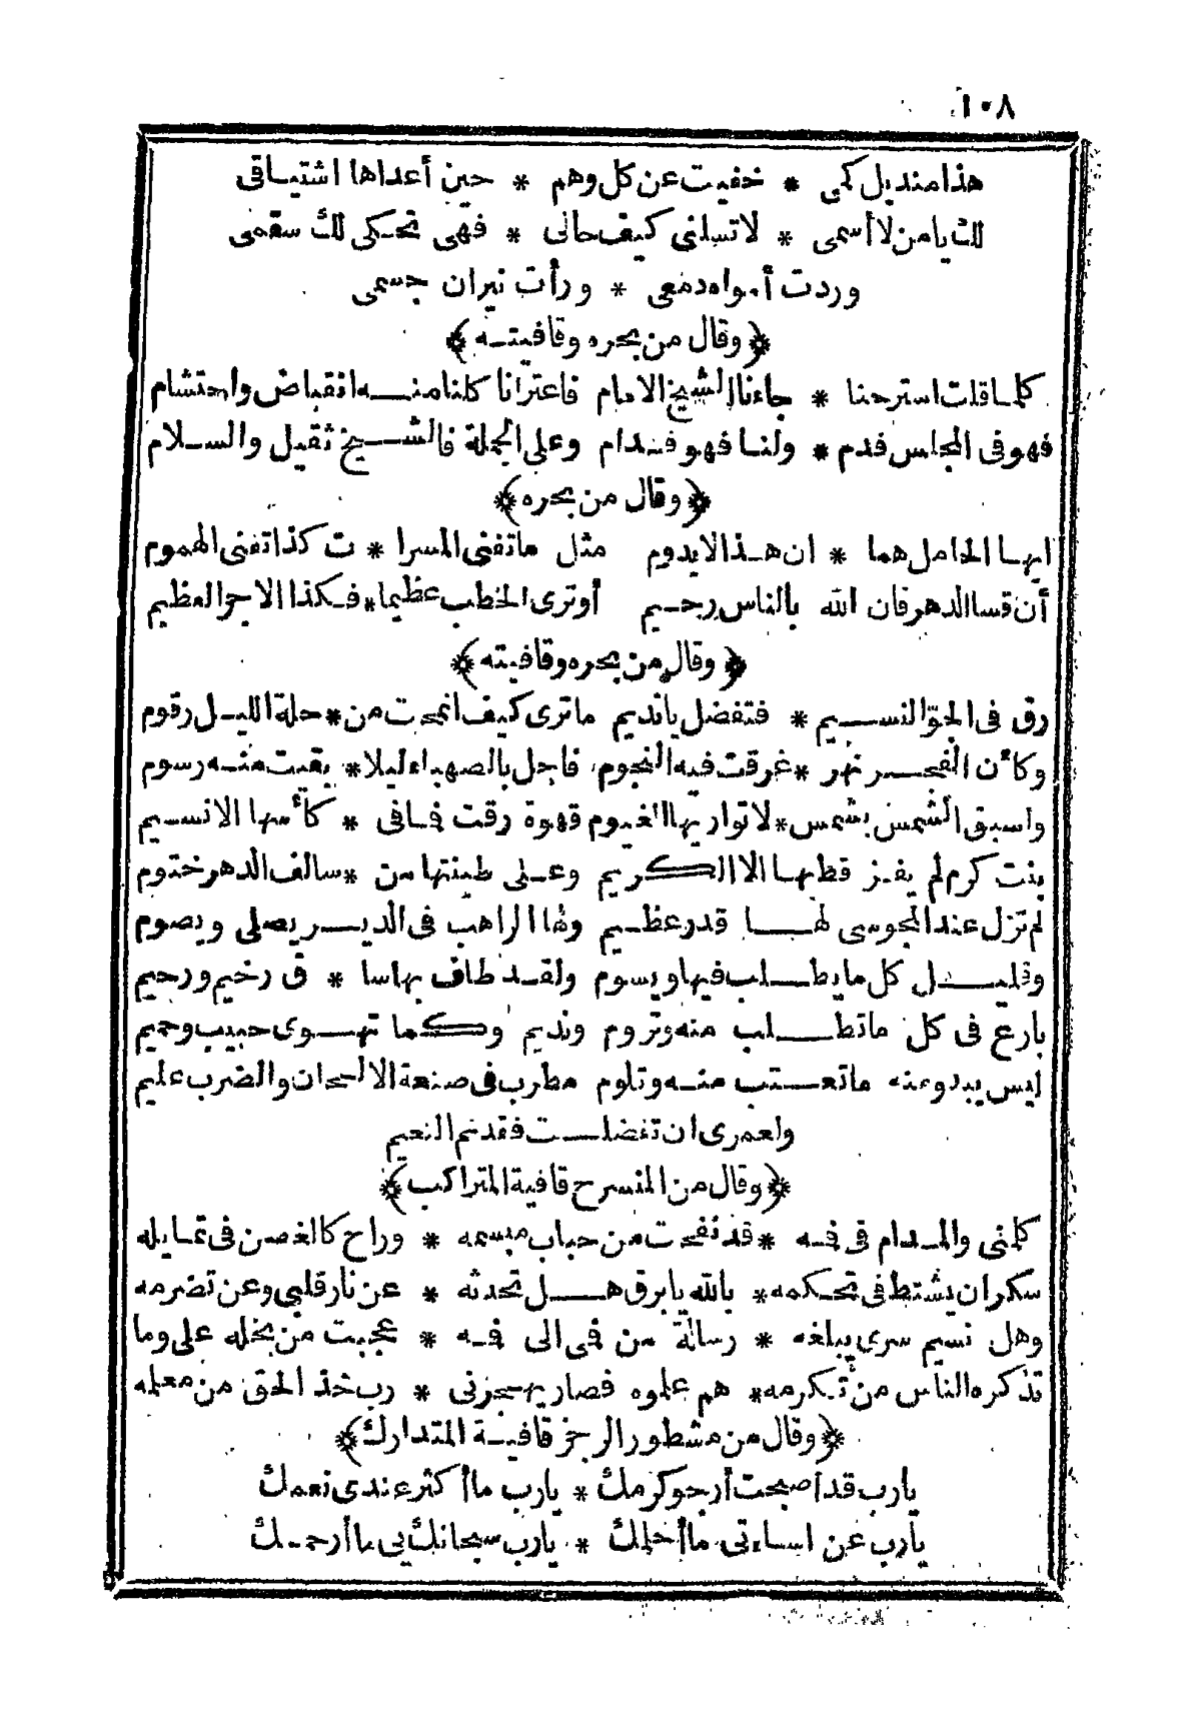 ١٠٨
هذا منديل كمى * خفيت عن كل وهم * حين أعداها اشتياقى
لك يا من لا أسمى * لا تسلنى كيف حالى * فهى تحكى لك سقمى
وردت أمواه دمعى * ورأت نيران جسمى
﴿وقال من بحره وقافيته﴾
كلما قلت استرحنا * جاءنا الشيخ الامام فاعترانا كلنا منه انقباض واحتشام
فهو فى المجلس فدم * ولنا فهو فدام وعلى الجملة فالشيخ ثقيل والسلام
﴿وقال من بحره﴾
ايها الحامل هما * ان هذا لا يدوم مثل ما تفنى المسرا * ت كذا تفنى الهموم
أن قسا الدهر فان الله بالناس رحيم أو ترى الخطب عظيما * فكذا الاجر العظيم
﴿وقال من بحره وقافيته﴾
رق فى الجوّ النسيم * فتفضل يا نديم ما ترى كيف انمحت من * حلة الليل رقوم
وكأن الفجر نهر * غرقت فيه النجوم فاجل بالصهباء ليلا * بقيت منه رسوم
واسبق الشمس بشمس * لا تواريها الغيوم قهوة رقت فما فى * كأسها الا نسيم
بنت كرم لم يفز قط بها الا الكريم وعلى طينتها من * سالف الدهر ختوم
لم تزل عند المجوسى لها قدر عظيم ولها الراهب فى الدير يصلى ويصوم
وقليل كل ما يطلب فيها ويسوم ولقد طاف بها سا * ق رخيم ورحيم
بارع فى كل ما تطلب منه وتروم ونديم وكما تهوى حبيب وحميم
ليس يبدو منه ما تعتب منه وتلوم مطرب فى صنعة الالحان والضرب عليم
ولعمرى ان تفضلت فقد تم النعيم
﴿وقال من المنسرح قافية المتراكب﴾
كلمنى والمدام فى فمه * قد نفحت من حباب مبسمه * وراح كالغصن فى تمايله
سكران يشتط فى تحكمه * بالله يا برق هل تحدثه * عن نار قلبى وعن تضرمه
وهل نسيم سرى يبلغه * رسالة من فمى الى فمه * عجبت من بخله على وما
تذكره الناس من تكرمه * هم علموه فصار يهجرنى * رب خذ الحق من معلمه
﴿وقال من مشطور الرجز قافية المتدارك﴾
يارب قد أصبحت أرجو كرمك * يارب ما أكثر عندى نعمك
يارب عن اساءتى ما أحلمك * يارب سبحانك بى ما أرحمك